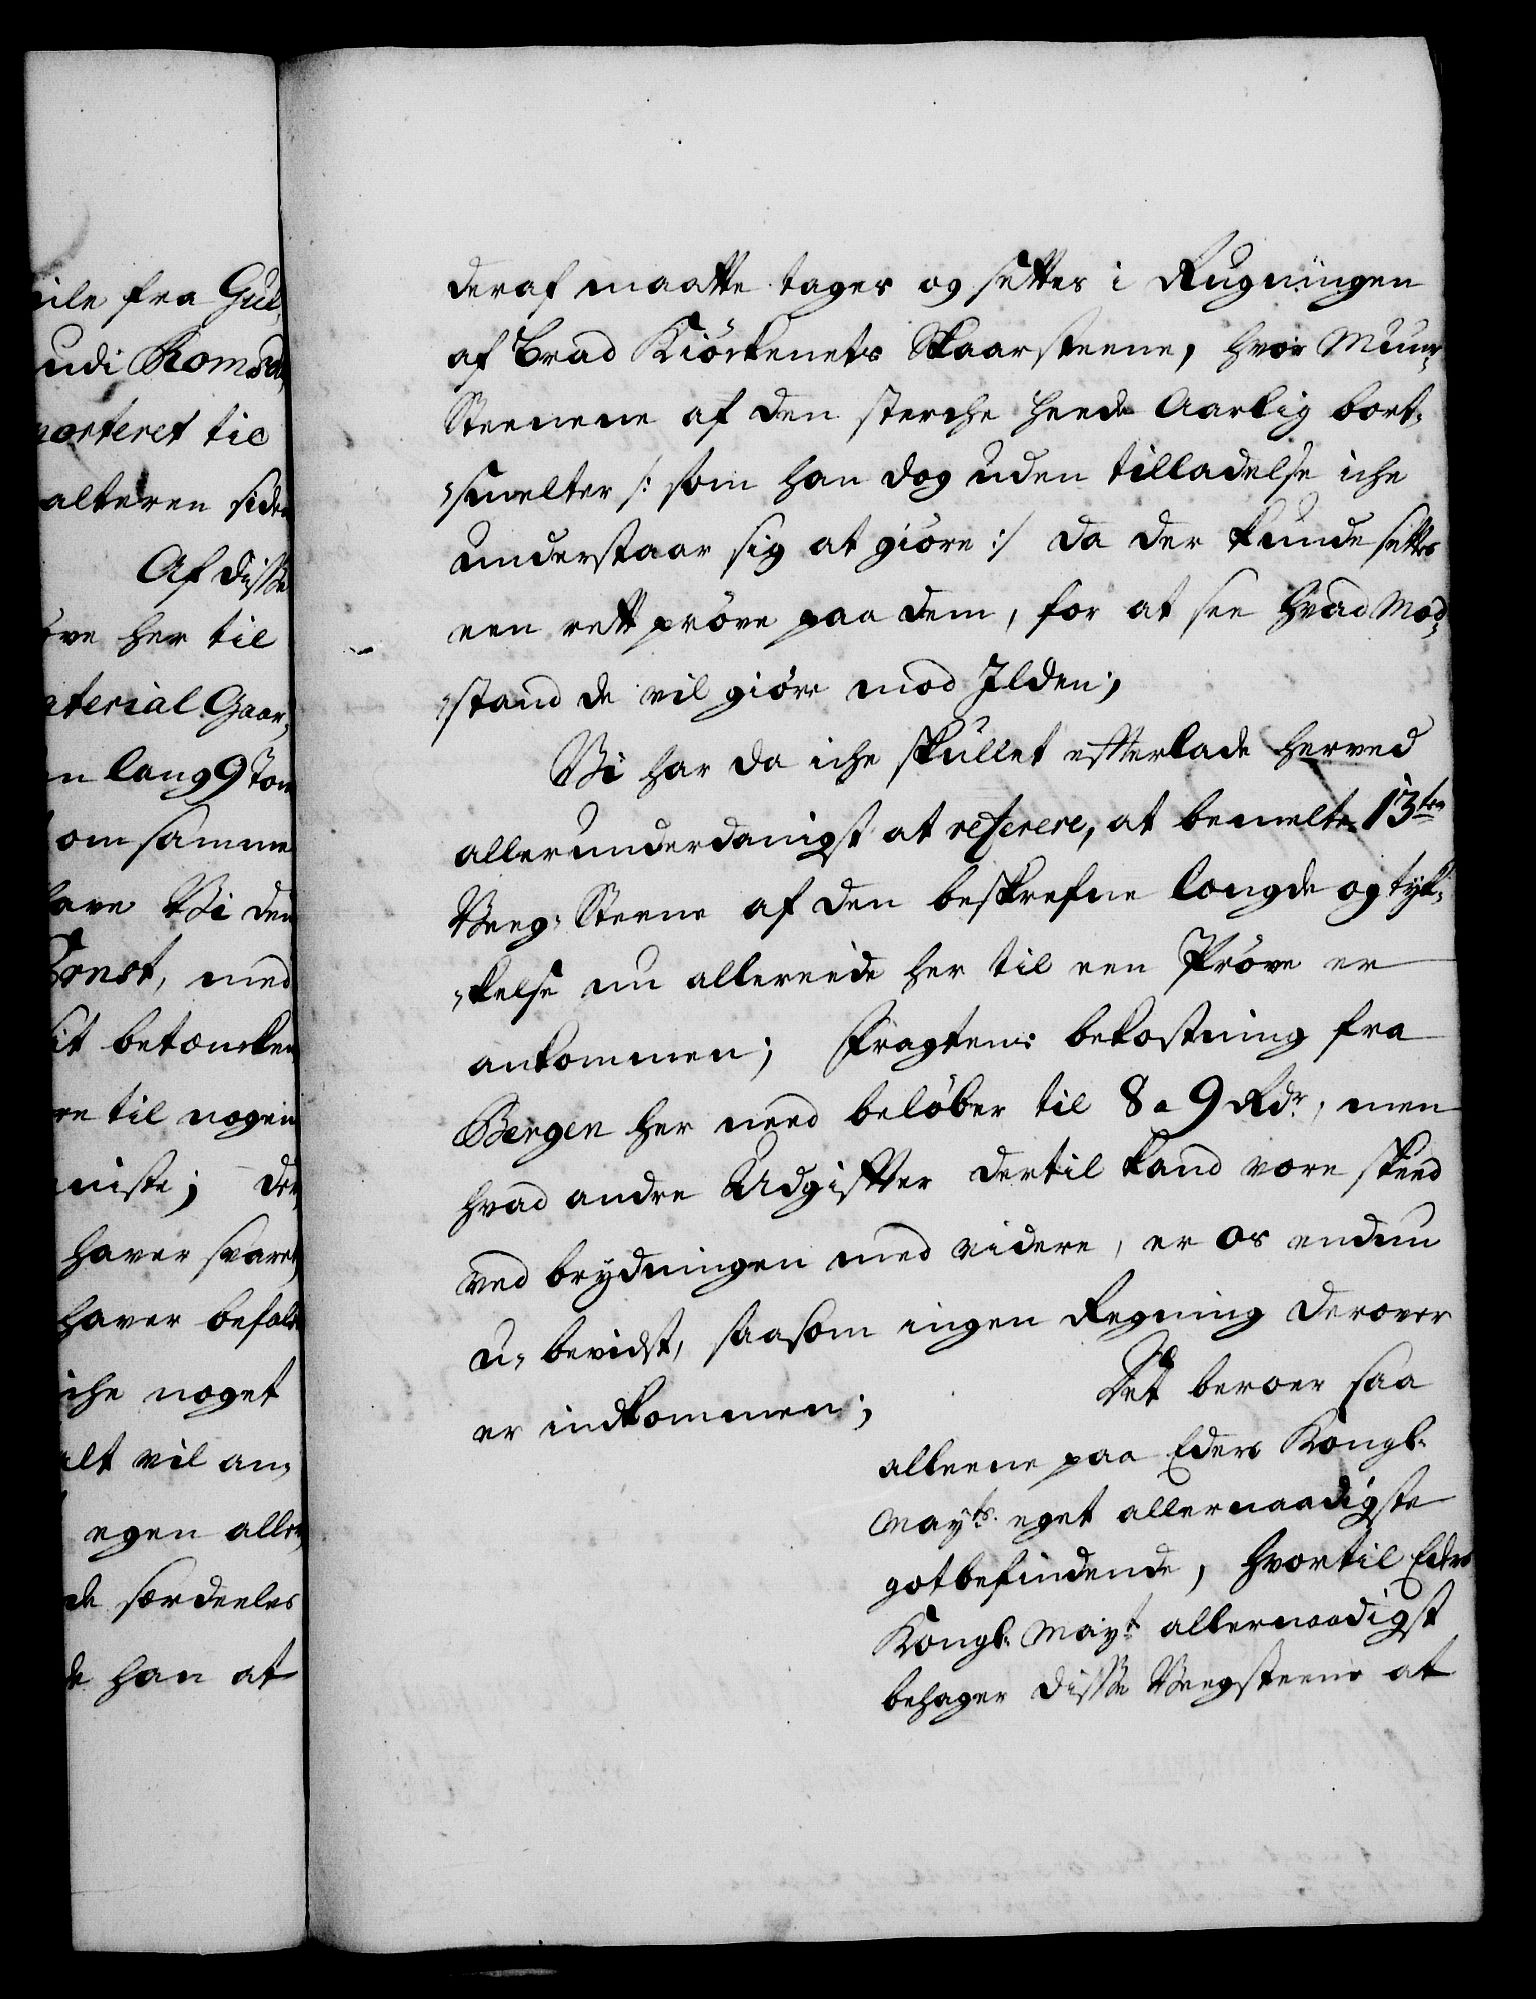 ile fra Gul,
udi Romsd,
porteret til
alteren siden
Af disse
øve her til
aterial Gaar,
n lang 9 Tom
om samme
have Vi den
Ernst, med
sit betæncken
re til nogen
miste; der
haver svaret,
haver befald
iche noget
alt vil an,
egen aller,
de særdeeles
de han at
deraf maatte tages og settes i Rugningen
af Brad Kiøckenets Skaarsteene, hvor Muur,
Steenene af den sterche heede Aarlig bort,
,smelter /: som han dog uden tilladelse iche
understaar sig at giøre :/ da der kunde settes
een rett prøve paa dem, for at see hvad Mod,
,stand de vil giøre mod Ilden;
Vi har da iche skullet efterlade herved
allerunderdanigst at referere, at bemelte 13ten
Veeg, Steene af den beskrefne længde og tyk,
,kelse nu allereede her til een Prøve er
ankommen; Fragtens bekostning fra
Bergen her need beløber til 8 a 9 Rdr, men
hvad andre Udgifter dertil kand være skeed
ved brydningen med videre, er os endnu
u, bevidst, saasom ingen Regning derover
er indkommen;
Det beroer saa
alleene paa Eders Kongl.
Mayts. eget allernaadigste
gotbefindende, hvortil Eders
Kongl. Mayt allernaadigst
behager disse Veegsteene at